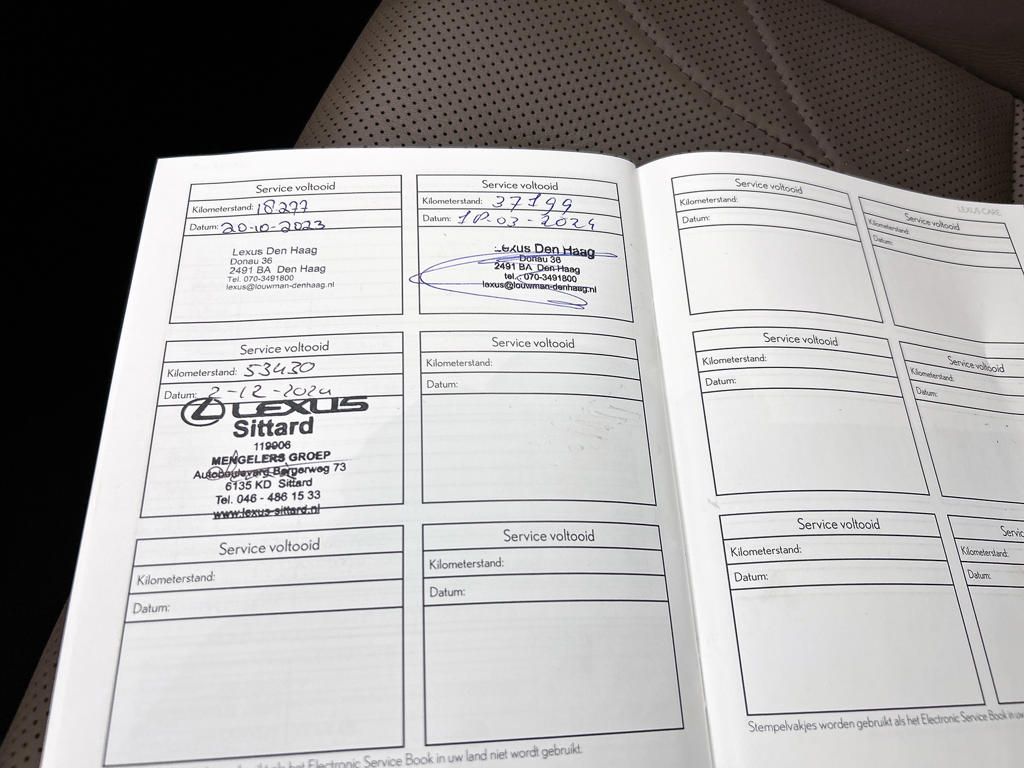 Service voltooid
Kilometerstand: 18.277
Datum: 20-10-2023
Lexus Den Haag
Donau 36
2491 BA Den Haag
Tel. 070-3491800
lexus@louwman-denhaag.nl
Service voltooid
Kilometerstand: 37199
Datum: -03-2024
Lexus Den Haag
Donau 36
2491 BA Den Haag
tel. 070-3491800
lexus@louwman-denhaag.nl
Service voltooid
Kilometerstand: 53430
Datum: 2-12-2024
LEXUS
Sittard
119906
MENGELERS GROEP
Autoboulevard Bergerweg 73
6135 KD Sittard
Tel. 046 - 486 15 33
www.lexus-sittard.nl
Service voltooid
Kilometerstand:
Datum:
Service voltooid
Kilometerstand:
Datum:
Service voltooid
Kilometerstand:
Datum:
als het Electronic Service Book in uw land niet wordt gebruikt.
LEXUS CARE
Service voltooid
Kilometerstand:
Datum:
Service voltooid
Kilometerstand:
Datum:
Service voltooid
Kilometerstand:
Datum:
Service voltooid
Kilometerstand:
Datum:
Service voltooid
Kilometerstand:
Datum:
Servic
Kilometerstand:
Datum:
Stempelvakjes worden gebruikt als het Electronic Service Book in uw